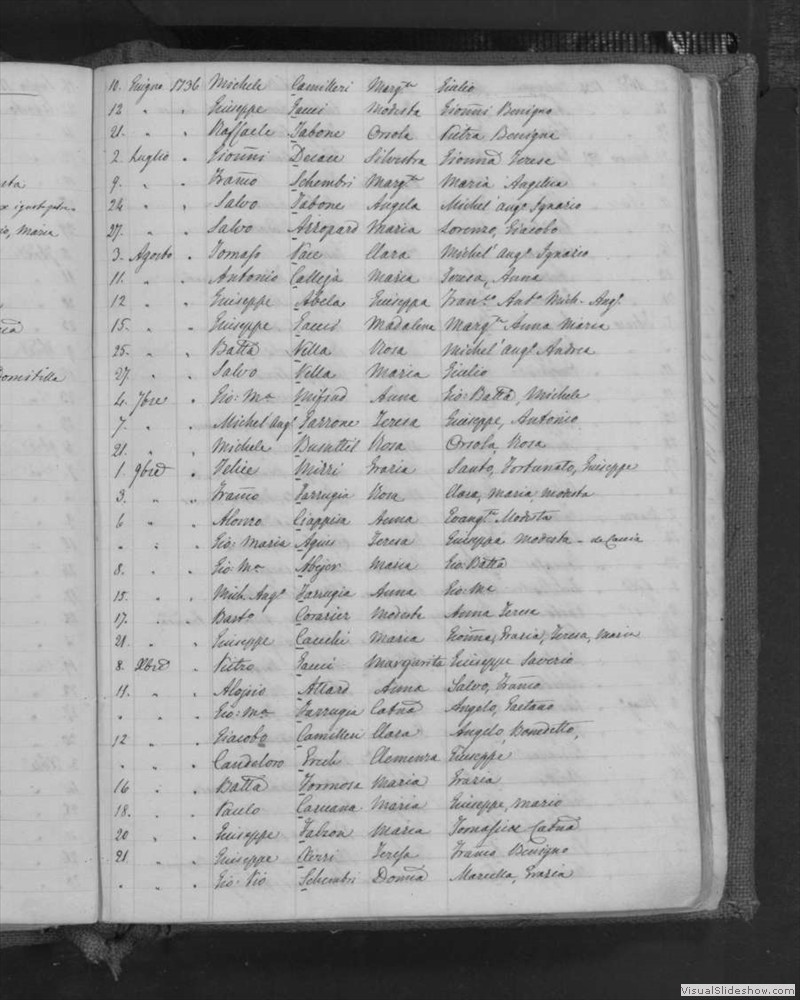 10. Giugno 1736 Michele Camilleri Margta Giulio
12 " " Giuseppe Modesta Gionni Benigno
21. " " Raffaele Tabone Orsola Pietra Benigna
2 Luglio " Gionni Silvestra Gionna Terese
9. " " Franco Schembri Margta Maria Angelica
24 " " Salvo Tabone Angela Michel' Ango Ignazio
27. " " Salvo Maria Lorenzo, Giacobo
3. Agosto " Tomaso Pace Clara Michel' Ango Ignazio
11. " " Antonio Calleja Maria Teresa, Anna
12 " " Giuseppe Abela Giuseppa Franco Anto Mich. Ango
15. " " Giuseppe Madalena Margta Anna Maria
25. " " Batta Vella Rosa Michel' Ango Andrea
27. " " Salvo Vella Maria Giulio
4. 7bre " Gio: Ma Mifsud Anna Gio: Batta, Michele
7. " " Michel Ango Teresa Giuseppe, Antonio
21. " " Michele Busuttil Rosa Orsola Rosa
1. 9bre " Felice Mizzi Grazia Santo, Fortunato, Giuseppe
3. " " Franco Farrugia Rosa Clara, Maria Modesta
6 " " Alonzo Ciappisa Anna Evangta Modesta
" " " Gio: Maria Agius Teresa Giuseppa Modesta -
8. " " Gio: Ma Maria Gio: Batta
15. " " Mich. Ango Farrugia Anna Gio: Ma
17. " " Basto Modesta Anna Terese
21. " " Giuseppe Cauchi Maria Gionna, Grazia, Teresa, Maria
8. Xbre " Pietro Margarita Giuseppe Saverio
11. " " Aloisio Attard Anna Salvo, Franco
" " " Gio: Ma Farrugia Catna Angelo, Gaetano
12 " " Giacobo Camilleri Clara Angelo, Benedetto,
" " " Candeloro Clemenza Giuseppe
16 " " Batta Formosa Maria Grazia
18. " " Paulo Caruana Maria Giuseppe, Mario
20 " " Giuseppe Falzon Maria Catna
21. " " Giuseppe Teresa Franco Benigno
" " " Gio: Pio Schembri Domca Marcella, Grazia
Domitilla
VisualSlideshow.com